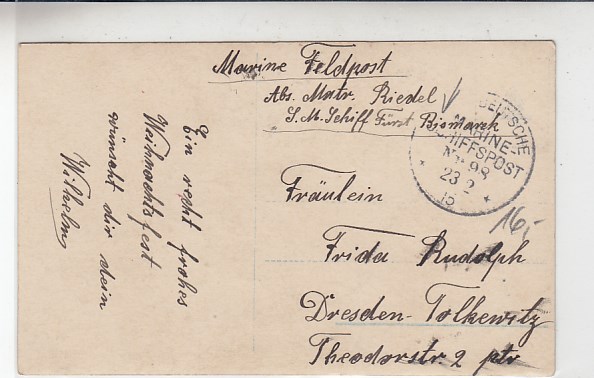 Marine Feldpost
Abs. Matr. Riedel
S. M. Schiff Fürst Bismarck
DEUTSCHE
MARINE-
SCHIFFSPOST
No 98
* 23 2 *
15
16,-
Ein recht frohes
Weihnachtsfest
wünscht dir dein
Wilhelm
Fräulein
Frida Rudolph
Dresden-Tolkewitz
Theodorstr. 2 ptr